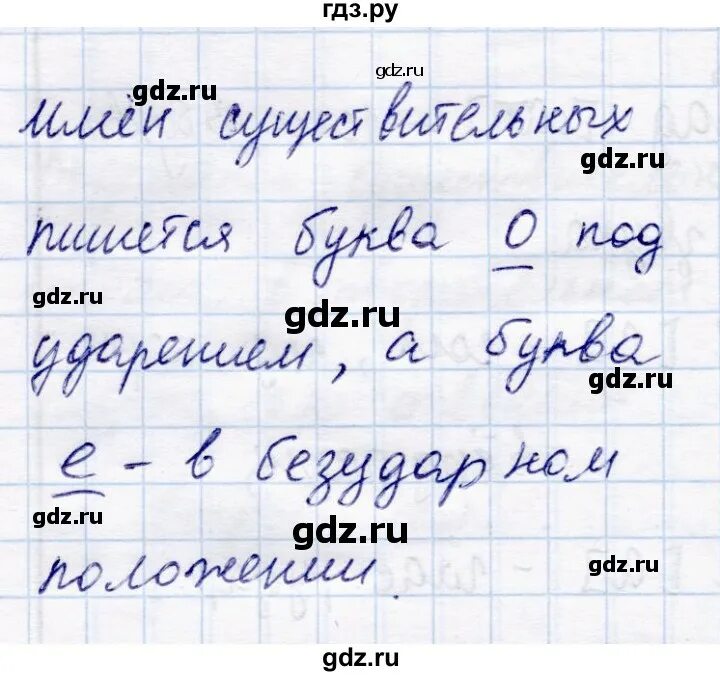 гдз.ру
gdz.ru
gdz.ru
имён существительных
gdz.ru
пишется буква о под
gdz.ru
gdz.ru
ударением, а буква
gdz.ru
е - в безударном
gdz.ru
gdz.ru
положении.
gdz.ru
gdz.ru